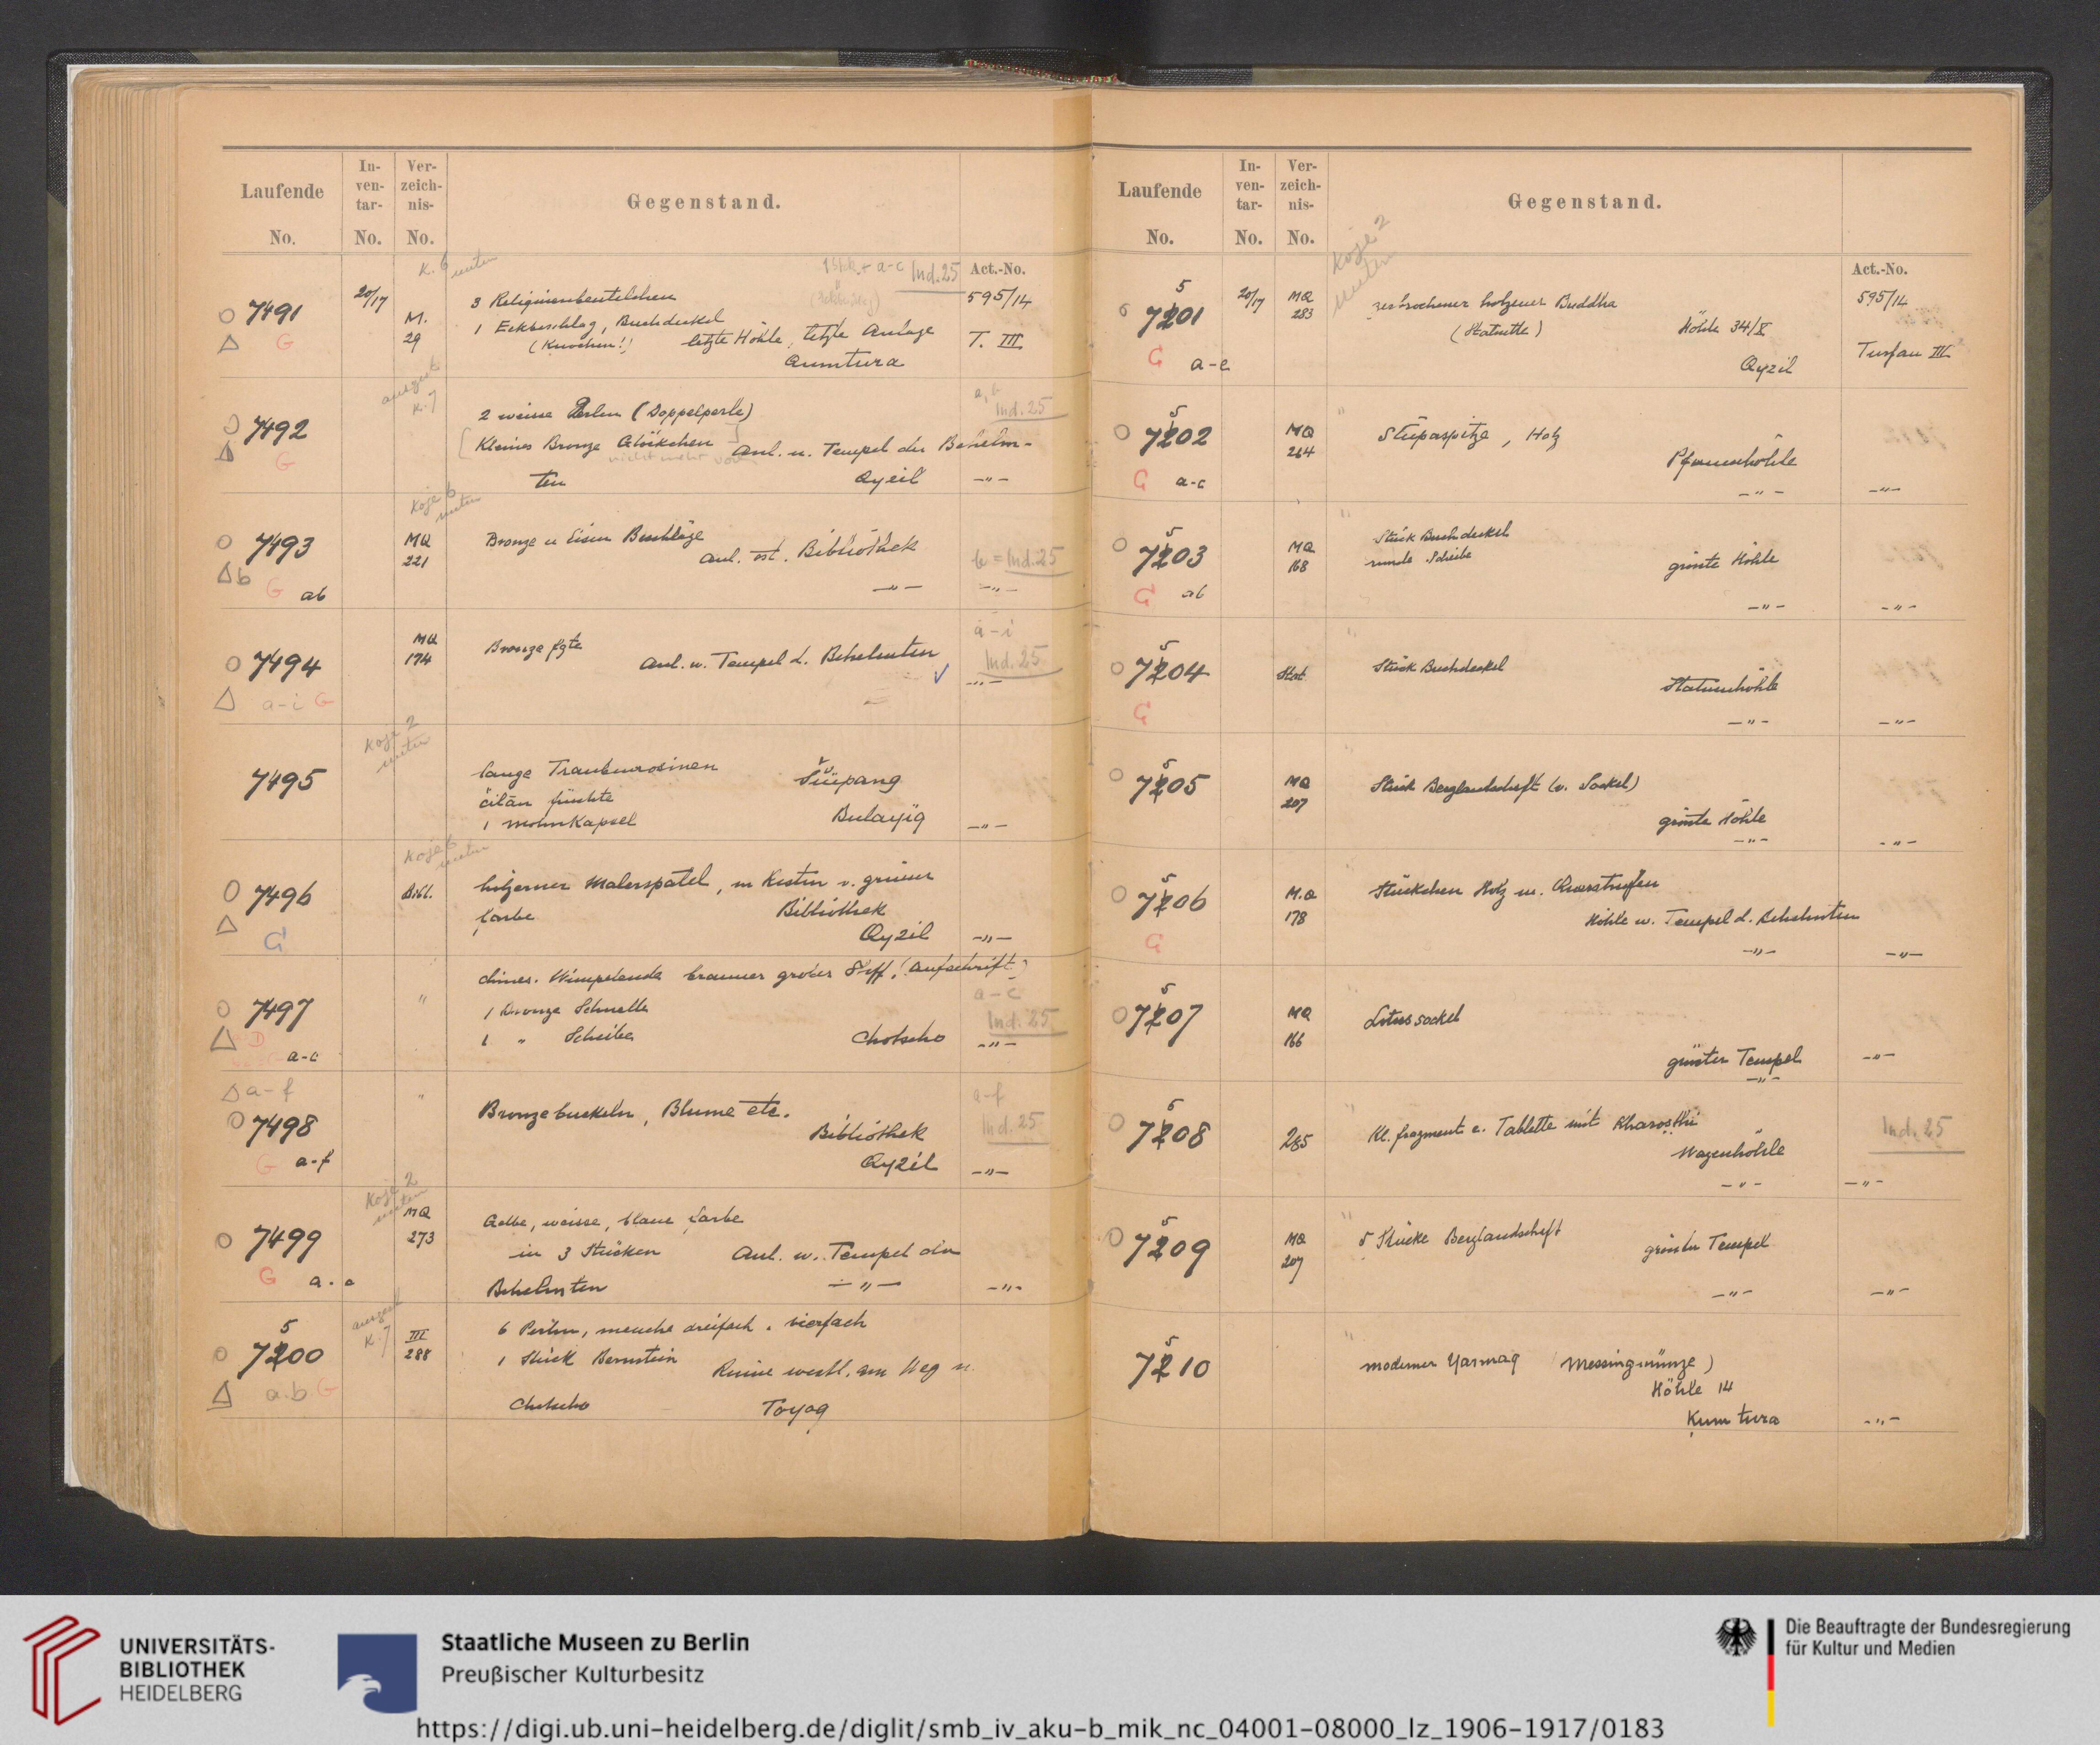 Laufende No.
In-ven-tar- No.
Ver-zeich-nis- No.
Gegenstand.
Act.-No.
K. 6 unten
a-c Ind. 25
7491
20/17
M. 29
3 Religionsbeutelchen
1 Eckbeschlag, Buchdeckel
(Knochen!) letzte Höhle, letzte Anlage
Qumtura
595/14
T. III
G
K. 7
7492
2 weisse Perlen (Doppelperle)
Kleines Bronze Glöckchen
nicht mehr
Anl. u. Tempel der Behelm-
ten
Qyzil
a, b
Ind. 25
-"-
G
Koje 6 unten
7493
MQ 221
Bronze u Eisen Beschläge
Anl. öst. Bibliothek
-"-
b = Ind. 25
-"-
b
G ab
7494
MQ 174
Bronze fgte
Anl. w. Tempel d. Behelmten
a-i
Ind. 25
-"-
a-i G
Koje 2 unten
7495
lange Traubenrosinen
čilān früchte
1 Mohnkapsel
Bulayïq
-"-
Koje 6 unten
7496
Bibl.
hölzerner Malerspatel, m Resten v. grüner
Farbe
Bibliothek
Qyzil
-"-
G
7497
"
chines. Wimpelende brauner grober Stff. (Aufschrift)
1 Bronze Schnalle
1 " Scheibe
Chotscho
a-c
Ind. 25
-"-
D
a-c
a-f
7498
"
Bronzebuckeln, Blume etc.
Bibliothek
Qyzil
a-f
Ind. 25
-"-
G a-f
Koje 2 unten
7499
MQ 273
Gelbe, weisse, blaue Farbe
in 3 Stücken
Anl. w. Tempel der
Behelmten
-"-
-"-
G a-c
K. 7
5
7200
III 288
6 Perlen, manche dreifach, vierfach
1 Stück Bernstein
Ruine westl. am Weg n.
Chotscho
Toyoq
a.b G
Laufende No.
In-ven-tar- No.
Ver-zeich-nis- No.
Gegenstand.
Act.-No.
Koje 2 unten
5
7201
20/17
MQ 283
zerbrochener hölzener Buddha
(Statuette)
Höhle 34/X
Qyzil
595/14
Turfan III
G a-e
5
7202
MQ 264
"
Stūpaspitze, Holz
Pfauenhöhle
-"-
-"-
G a-c
5
7203
MQ 168
"
Stück Buchdeckel
runde Scheibe
grösste Höhle
-"-
-"-
G ab
5
7204
Stat
"
Stück Buchdeckel
Statuenhöhle
-"-
-"-
G
5
7205
MQ 207
"
Stück Berglandschaft (v. Sockel)
grösste Höhle
-"-
-"-
5
7206
M.Q 178
"
Stückchen Holz m. Querstreifen
Höhle w. Tempel d. Behelmten
-"-
-"-
G
5
7207
MQ 166
Lotussockel
grösster Tempel
-"-
-"-
5
7208
285
"
Kl. fragment e. Tablette mit Kharoṣṭhī
Wagenhöhle
-"-
Ind. 25
-"-
5
7209
MQ 207
"
5 Stücke Berglandschaft
grösster Tempel
-"-
-"-
5
7210
"
moderner Yarmaq (Messingmünze)
Höhle 14
Kumtura
-"-
UNIVERSITÄTS-
BIBLIOTHEK
HEIDELBERG
Staatliche Museen zu Berlin
Preußischer Kulturbesitz
Die Beauftragte der Bundesregierung
für Kultur und Medien
https://digi.ub.uni-heidelberg.de/diglit/smb_iv_aku-b_mik_nc_04001-08000_lz_1906-1917/0183